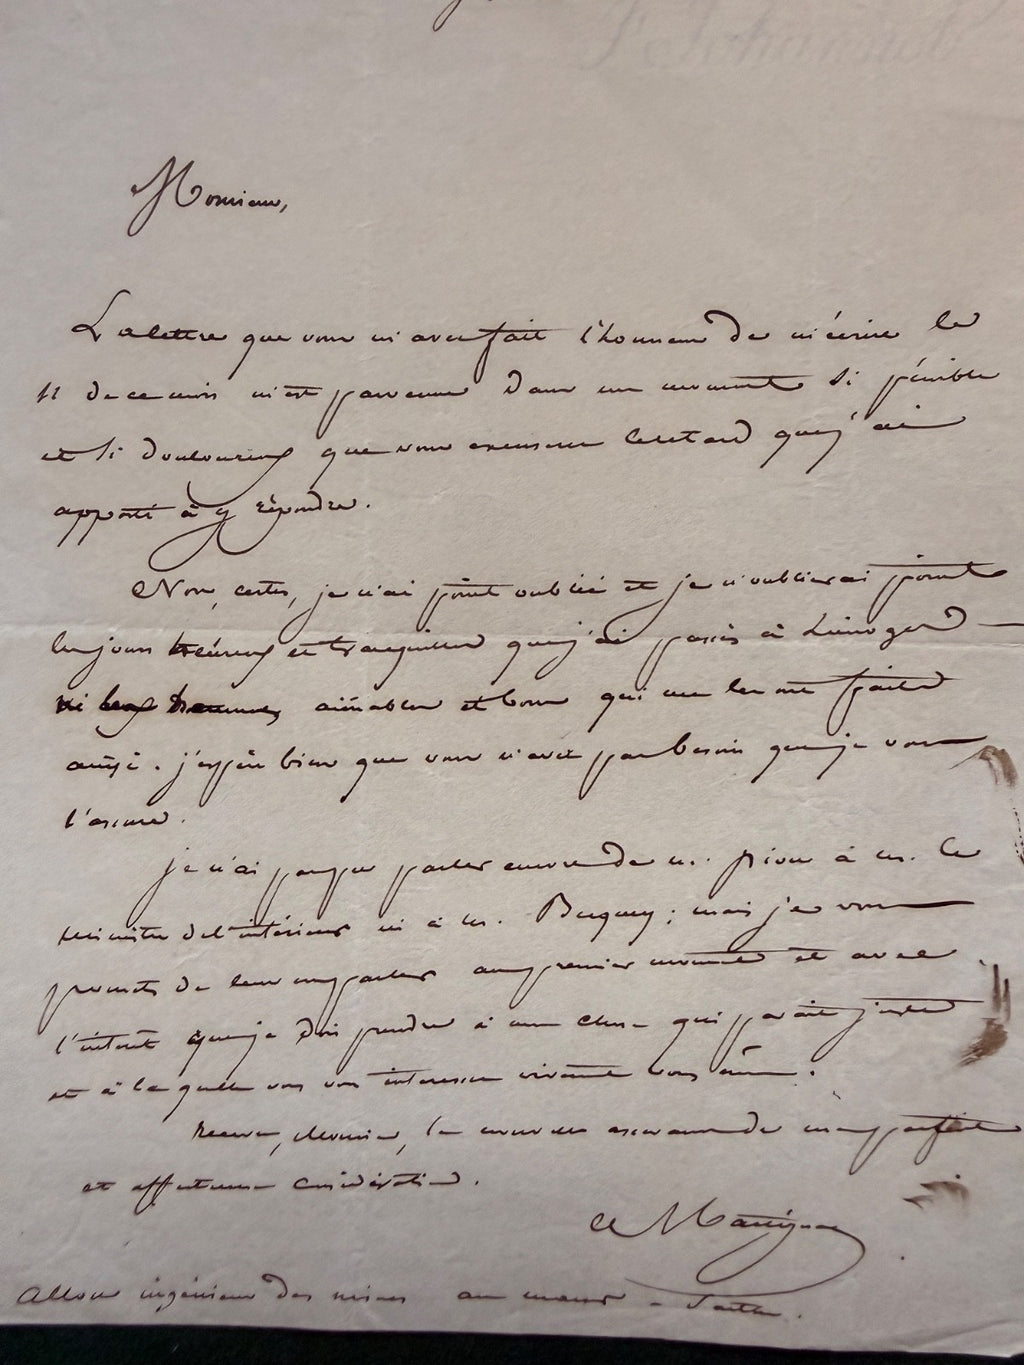 Monsieur,
La lettre que vous m'avez fait l'honneur de m'écrire le
11 de ce mois m'est parvenue dans un moment si pénible
et si douloureux que vous excuserez le retard que j'ai
apporté à y répondre.
Non, certes, je n'ai point oublié et je n'oublierai point
les jours heureux et tranquilles que j'ai passés à Limoges
ni les hommes aimables et bons qui me les ont faits
ainsi. j'espère bien que vous n'avez pas besoin que je vous
l'assure.
je n'ai pas pu parler encore de m. à m. le
ministre de l'intérieur ni à m. Becquey; mais je vous
promets de leur en parler au premier moment et avec
l'intérêt que je dois prendre à une chose qui parait juste
et à laquelle vous vous intéressez vivement vous même.
Recevez, Monsieur, la nouvelle assurance de ma parfaite
et affectueuse considération.
de Martignac
Allou ingénieur des mines au mans - Sarthe.